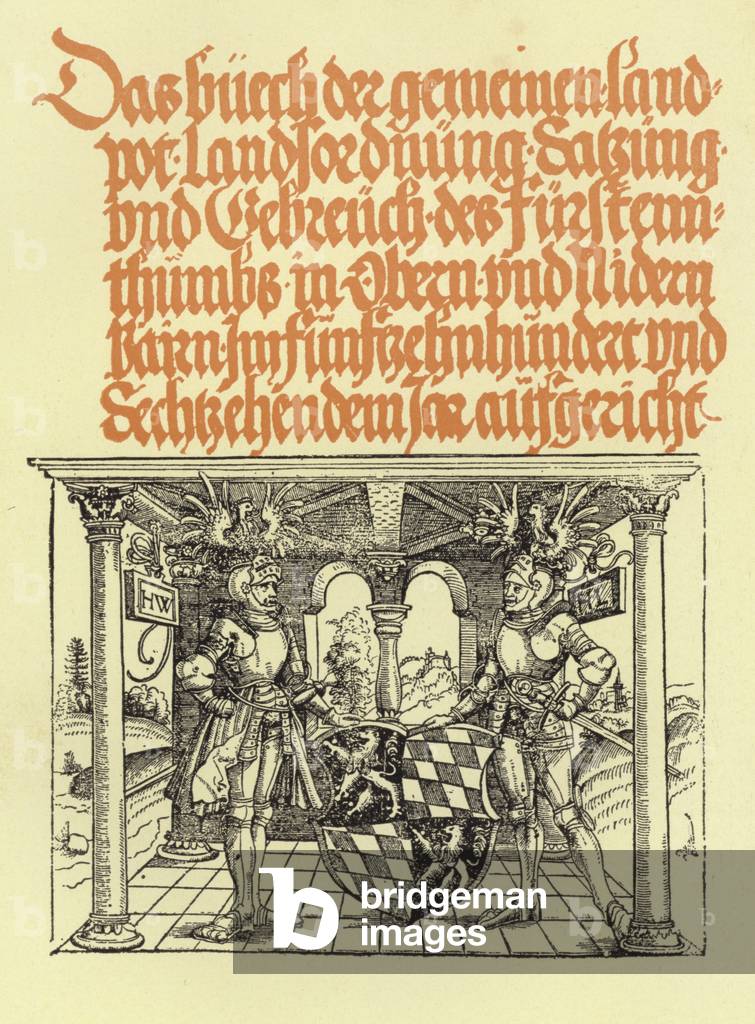 Das büech der gemeinen land-
pot· Landsordnüng· Satzüng·
vnd Gebreüch· des Fürstenn-
thümbs· in Obern· vnd Nidern
Bairn· Im fünftzehnhündert vnd
Sechtzehendem Jar aüfgericht
HW
bridgeman
images